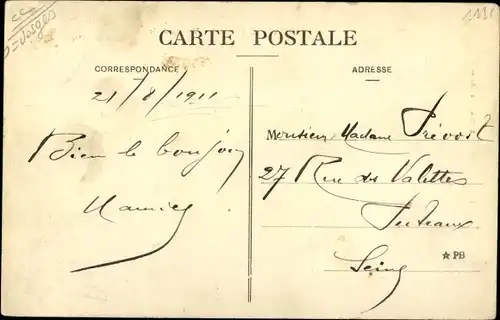 CARTE POSTALE
CORRESPONDANCE
ADRESSE
21/8/1911
Bien le bonjour
Monsieur Madame Prévost
27 Rue des Valettes
Puteaux
Seine
★ PB